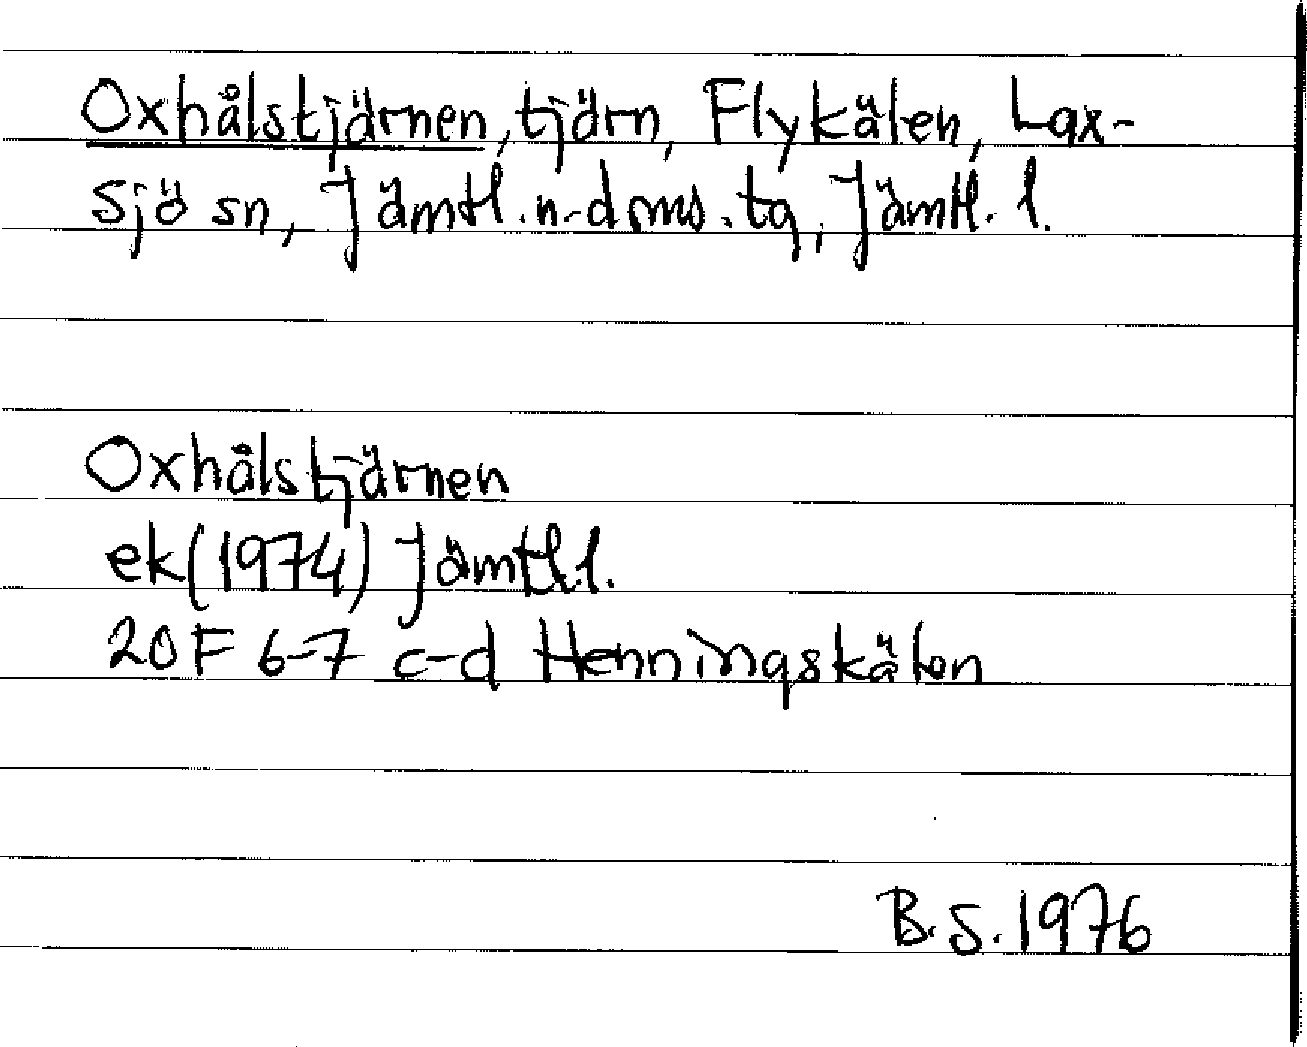 Oxhålstjärnen, tjärn, Flykälen, Lax-
sjö sn, Jämtl. n. doms. tg, Jämtl. l.
Oxhålstjärnen
ek (1974) Jämtl.l.
20F 6-7 c-d Henningskälen
B.S. 1976